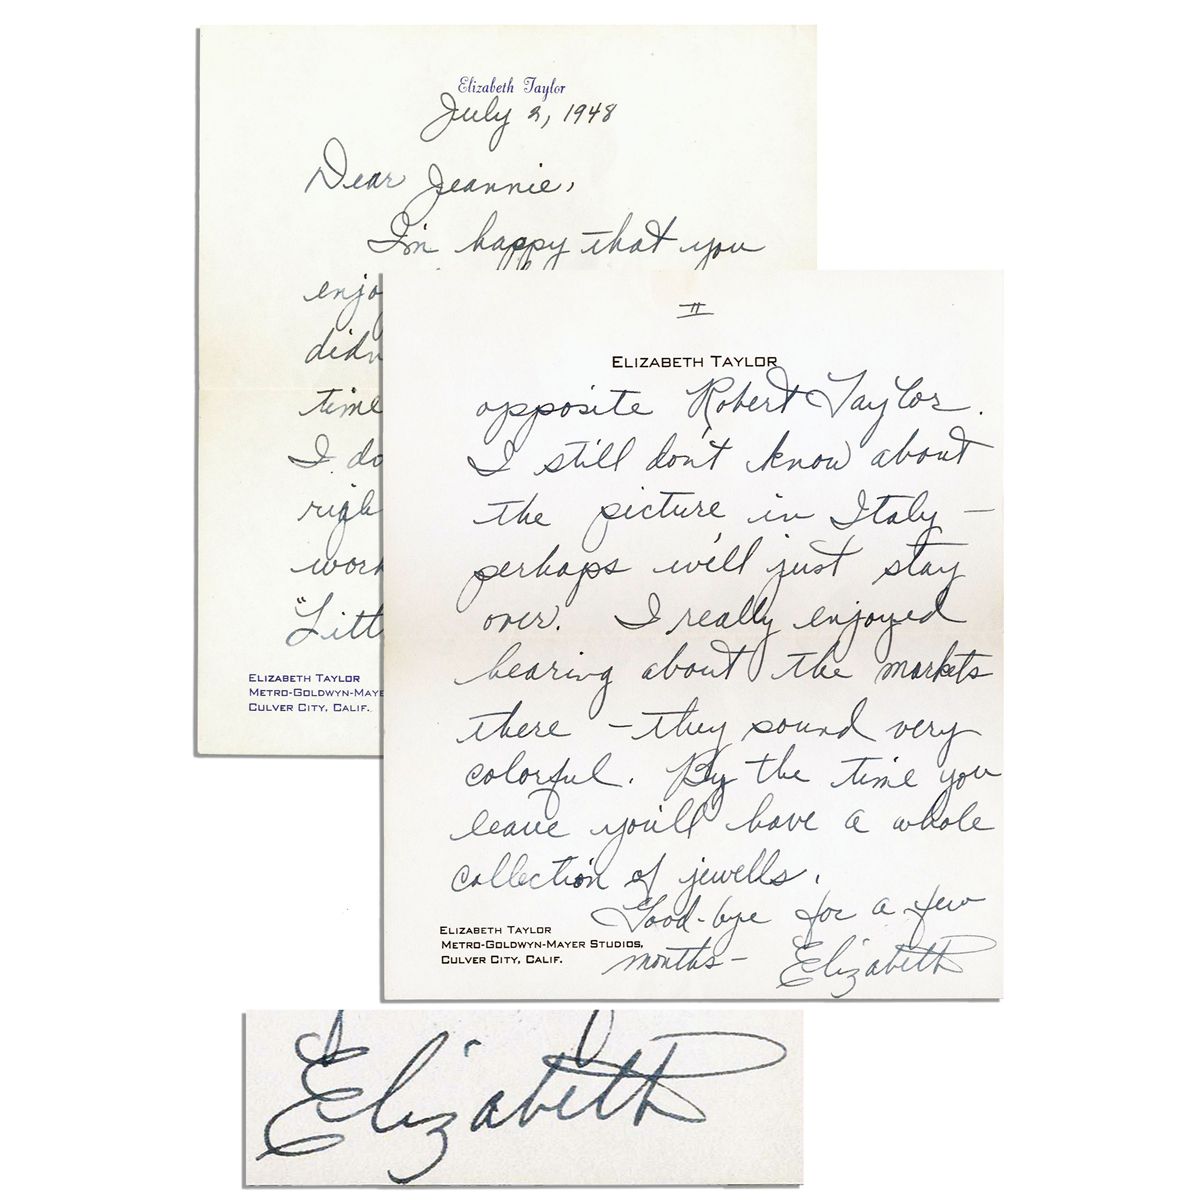 Elizabeth Taylor
July 2, 1948
Dear Jeannie,
I'm happy that you
enjo
didn
time
I do
righ
work
"Litt
ELIZABETH TAYLOR
METRO-GOLDWYN-MAYE
CULVER CITY, CALIF.
II
ELIZABETH TAYLOR
opposite Robert Taylor.
I still don't know about
the picture in Italy —
perhaps we'll just stay
over. I really enjoyed
hearing about the markets
there – they sound very
colorful. By the time you
leave you'll have a whole
collection of jewells.
Good-bye for a few
months – Elizabeth
ELIZABETH TAYLOR
METRO-GOLDWYN-MAYER STUDIOS,
CULVER CITY, CALIF.
Elizabeth